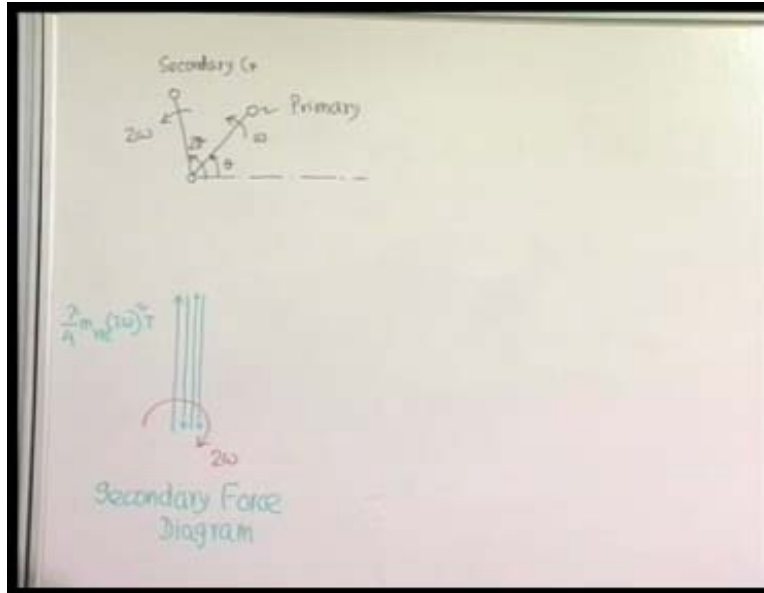 Secondary Cr
Primary
2ω
2θ
ω
θ
2ω
Secondary Force
Diagram